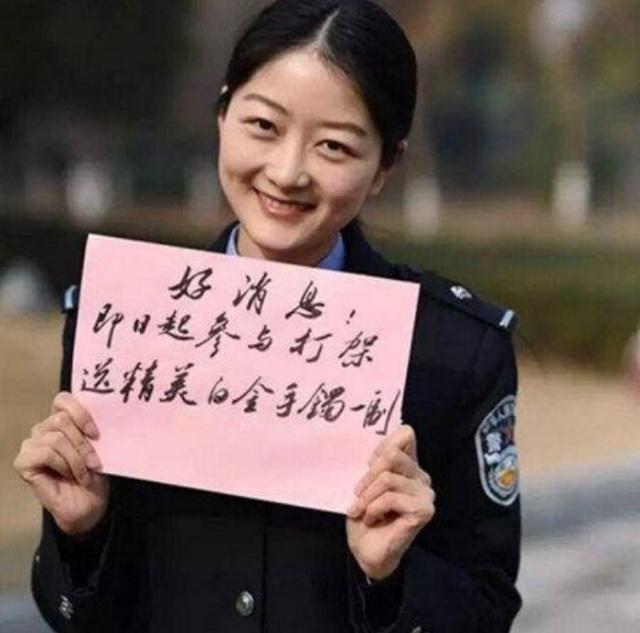 好消息！
即日起参与打架
送精美白金手镯一副